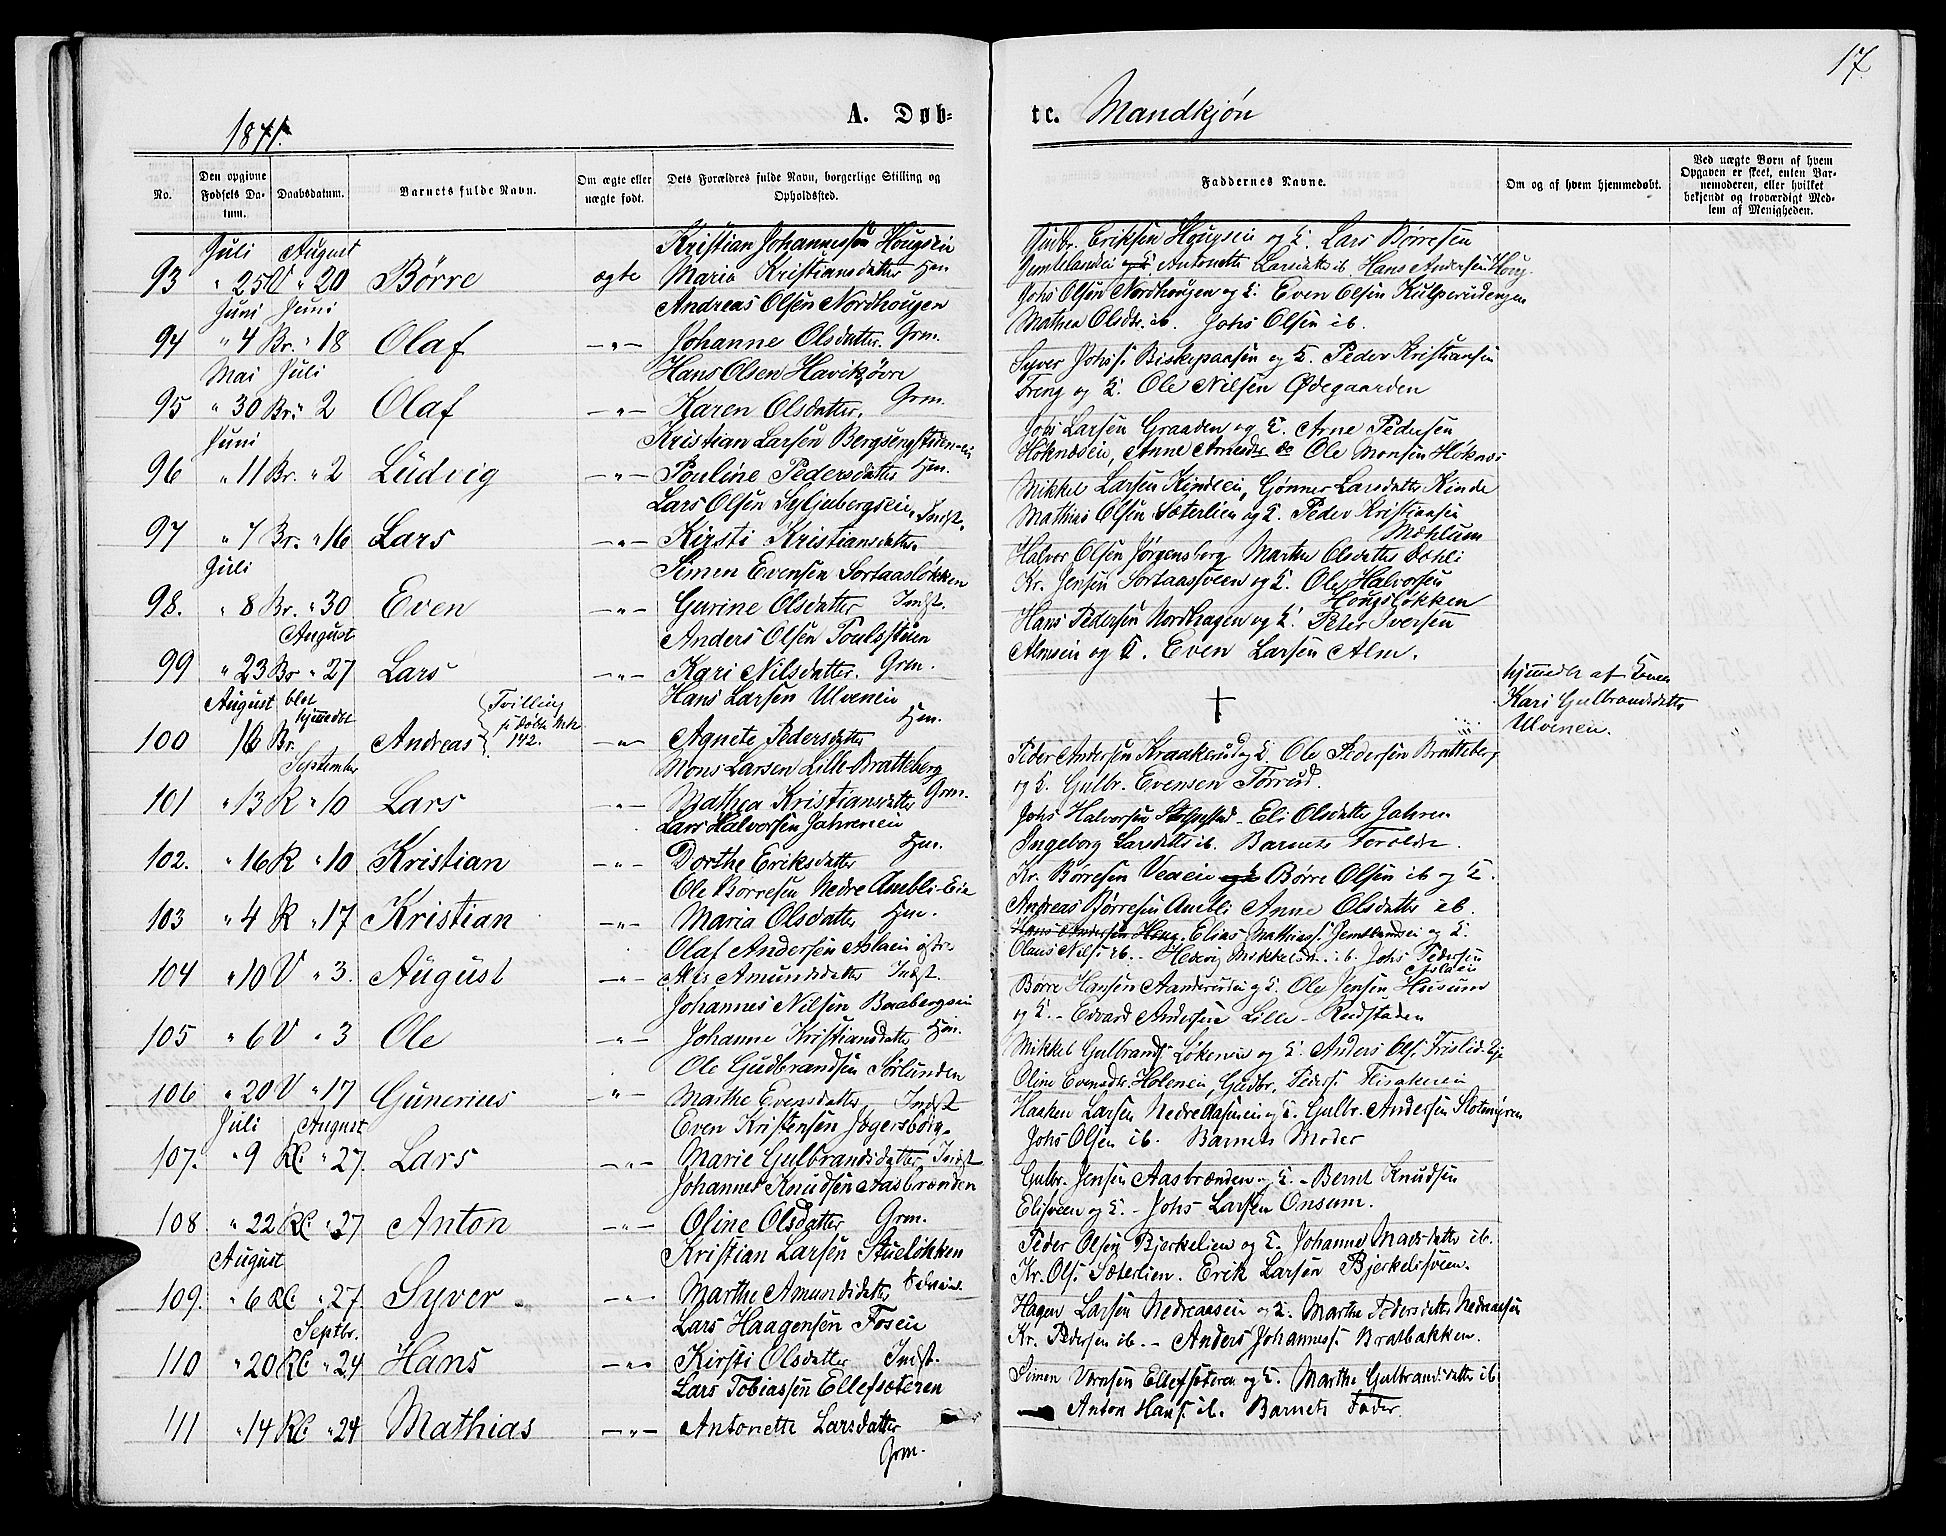 17
1871.
A. Døb-
te. Mandkjøn
No.
Den opgivne Fødsels Da-tum.
Daabsdatum.
Barnets fulde Navn.
Om ægte eller uægte født.
Dets Forældres fulde Navn, borgerlige Stilling og Opholdssted.
Faddernes Navne.
Om og af hvem hjemmedøbt.
Ved uægte Børn af hvem Opgaven er skeet, enten Bar-nemoderen, eller hvilket bekjendt og troværdigt Med-lem af Menigheden.
Juli August Kristian Johannessen Hougseie
93 " 25 V " 20 Børre ægte Maria Kristiansdatter Hm.
Gudbr. Eriksen Hougseie og K. Lars Børresen
Jemtlandei Antonette Larsdatter ib Hans Andersen Houg
Juni Juni Andreas Olsen Nordhougen
94 " 4 Br. " 18 Olaf —"— Johanne Olsdatter. Grm.
Johs Olsen Nordhougen og K. Even Olsen Kulperudengen
Mathea Olsdtr. ib. Johs Olsen ib.
Mai Juli Hans Olsen Haviksøvre
95 " 30 Br. " 2 Olaf —"— Karen Olsdatter. Grm.
Syver Johs. Biskopaasen og K. Peder Kristiansen
Freng og K. Ole Nilsen Ødegaarden
Juni Kristian Larsen Bergsengstuen-ei
96 " 11 Br. " 2 Ludvig —"— Pouline Pedersdatter Hm.
Johs Larsen Graaden og K. Arne Pedersen
Høknæseie, Anne Arnesdtr. Ole Monsen Høknæs
Lars Olsen Syljubergseie Indst.
97 " 7 Br. " 16 Lars —"— Kirsti Kristiansdatter.
Mikkel Larsen Kindeei, Gønner Larsdatter Kinde
Mathias Olsen Sæterlien og K. Peder Kristiansen
Mæhlum
Juli Simen Evensen Sortaasløkken
98. " 8 Br. " 30 Even —"— Gurine Olsdatter Indst.
Halvor Olsen Jørgensberg Marthe Olsdatter Dahli
Kr. Jensen Sortaassveen og K. Ole Halvorsen
Hougsløkken
August Anders Olsen Poulsstuen
99 " 23 Br " 27 Lars —"— Kari Nilsdatter. Grm.
Hans Pedersen Nordhagen og K. Peter Iversen
Almseie og K. Even Larsen Alm.
August blot hjmedøbt Hans Larsen Ulveneie
100 16 Br. Andreas Tvilling 142. —"— Agnete Pedersdatter Hm.
†
hjmedbt af Konen
Kari Gulbrandsdatter
Ulveneie.
September Mons Larsen Lille-Bratteberg
101 " 13 R " 10 Lars —"— Mathea Kristiansdatter Grm.
Peder Andersen Kraakerud og K. Ole Pedersen Bratteberg
og K. Gulbr. Evensen Torrud.
Lars Halvorsen Jahreneie
102. " 16 R " 10 Kristian —"— Dorthe Eriksdatter Hm.
Johs Halvorsen Stolpestad - Eli Olsdatter Jahren
Ingeborg Larsdatter ib. Barnets Forældre.
Ole Børresen Nedre Ambli-Eie
103 " 4 R " 17 Kristian —"— Maria Olsdatter Hm.
Kr. Børresen Veeeie Børre Olsen ib og K.
Andreas Børresen Ambli Anne Olsdatter ib.
Olaf Andersen Aslaeie østre
104 " 10 V " 3. August —"— Amundsdatter Indst.
Hans Andersen Houg. Elias Mathiass. Jemtlandsei og K.
Olaus Nils. ib. - Hedvig Mikkelsdtr. ib. Johs Pedersen
Johannes Nilsen Baabergseie
105 " 6 V " 3 Ole —"— Johanne Kristiansdatter Hm.
Børre Hansen Aanderud og K. Ole Jensen Husum
og K. - Edvard Andersen Lille-Rudstaden
Ole Gudbrandsen Sørlunden
106 " 20 V " 17 Gunerius —"— Marthe Evensdatter Indst
Mikkel Gulbrands. Løkeneie og K. Anders Ols. Frislid-Eje
Oline Evensdtr. Holeneie, Gudbr. Peders. Flisakereie
Juli August Even Kristensen Jægersborg
107. " 9 Kl. " 27. Lars —"— Marie Gulbrandsdatter Indst
Haaken Larsen Nedreaaseneie og K. Gulbr. Andersen Slotmyren
Johs Olsen ib. Barnets Moder
Johannes Knudsen Aasbrænden
108 " 22 Kl. " 27 Anton —"— Oline Olsdatter Grm.
Gulbr. Jensen Aasbrænden og K. - Bernt Knudsen
Elisveen og K. - Johs Larsen Onsum.
August Kristian Larsen Stueløkken
109. " 6 Kl. " 27. Syver —"— Marthe Amundsdatter
Peder Olsen Bjerkelien og K. Johanne Madsdatter ib.
Kr. Ols. Sæterlien. Erik Larsen Bjerkelisveen.
Septbr. Lars Haagensen Foseie
110 " 20 Kl. " 24 Hans —"— Kirsti Olsdatter Indst.
Hagen Larsen Nedreaaseie og K. Marthe Pedersdatter Nedreaasen
Kr. Pedersen ib. - Anders Johanness. Bratbakken.
Lars Tobiassen Ellefsæteren
111 " 14 Kl. " 24 Mathias —"— Antonette Larsdatter
Grm.
Simen Ellefsæteren og K. Marthe Gulbrandsdatter ib.
Anton Hans. ib. Barnets Fader.